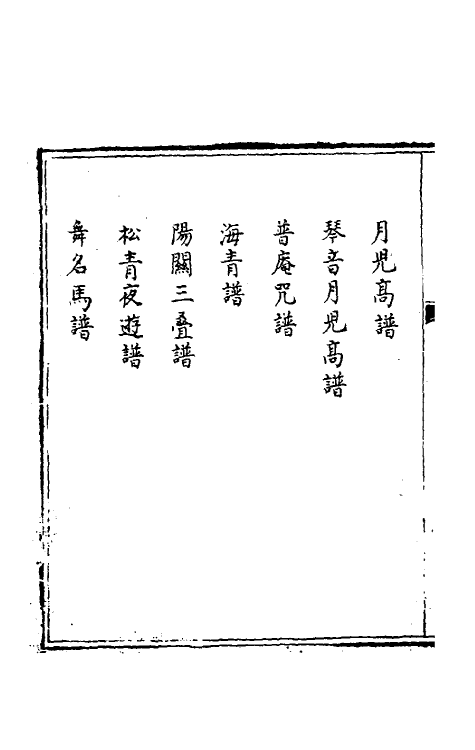 月児高譜
琴音月児高譜
普庵咒譜
海青譜
陽關三疊譜
松青夜遊譜
舞名馬譜